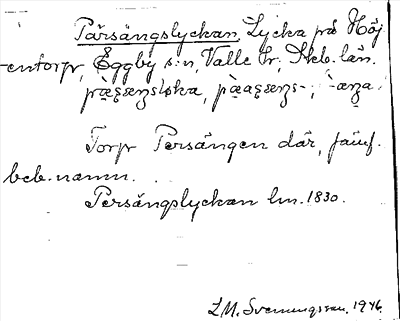 Pärsängslyckan, Lycka på Höj
-entorp, Eggby s:n, Valle hd, Skb. län.
Torp Persängen där, jämf.
beb.namn.
Persängslyckan lm. 1830.
S.M. Svenungsson, 1946.